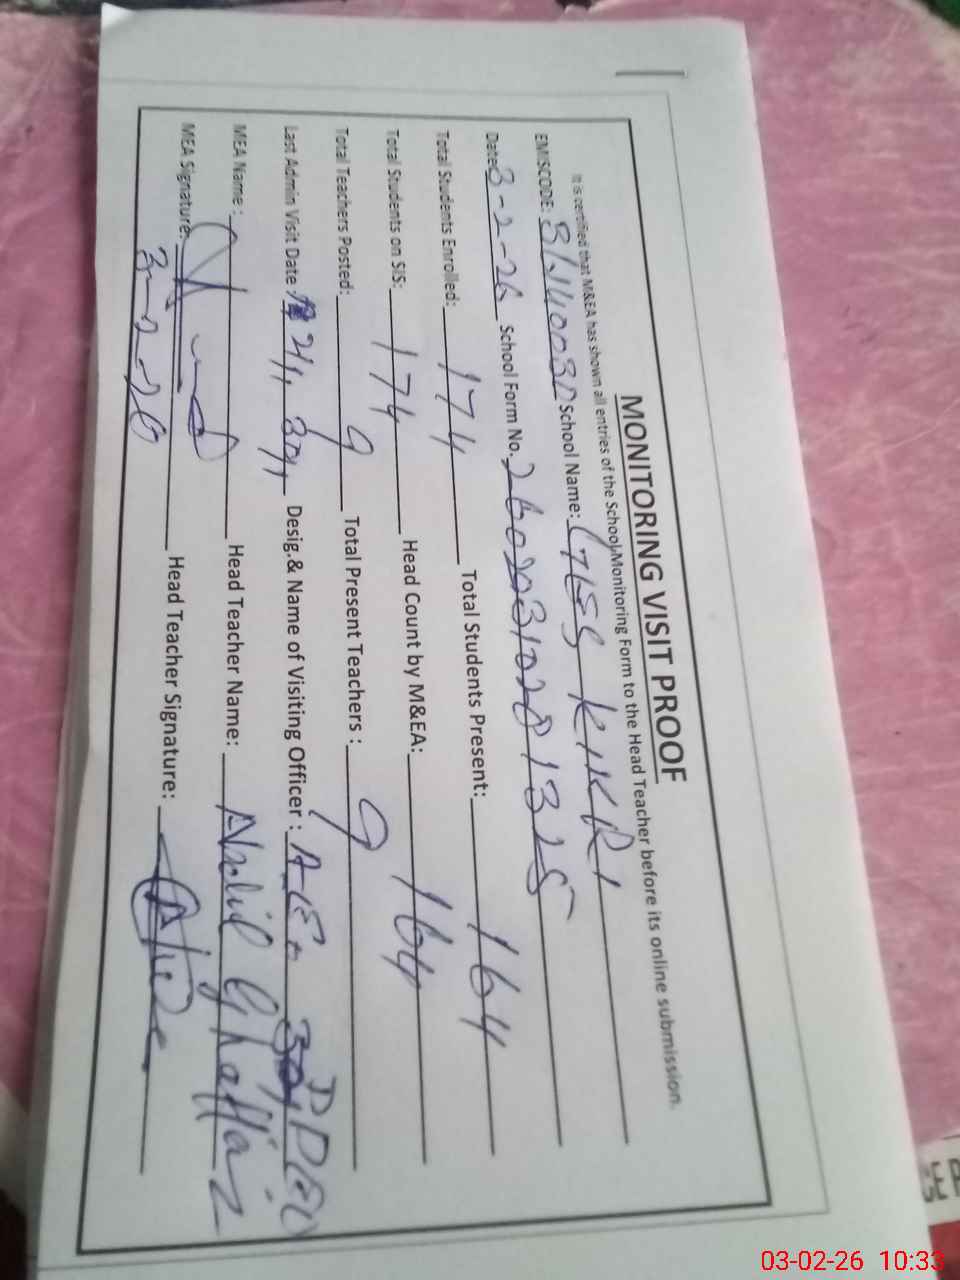 MONITORING VISIT PROOF
It is certified that M&EA has shown all entries of the School Monitoring Form to the Head Teacher before its online submission.
EMISCODE: School Name: KIKRI
Date: 3-2-26 School Form No.
Total Students Enrolled: 174 Total Students Present: 164
Total Students on SIS: 174 Head Count by M&EA: 164
Total Teachers Posted: 9 Total Present Teachers : 9
Last Admin Visit Date : Desig.& Name of Visiting Officer :
MEA Name: Head Teacher Name: Ghaffar
MEA Signature: Head Teacher Signature:
3-2-26
CE P
03-02-26 10:33